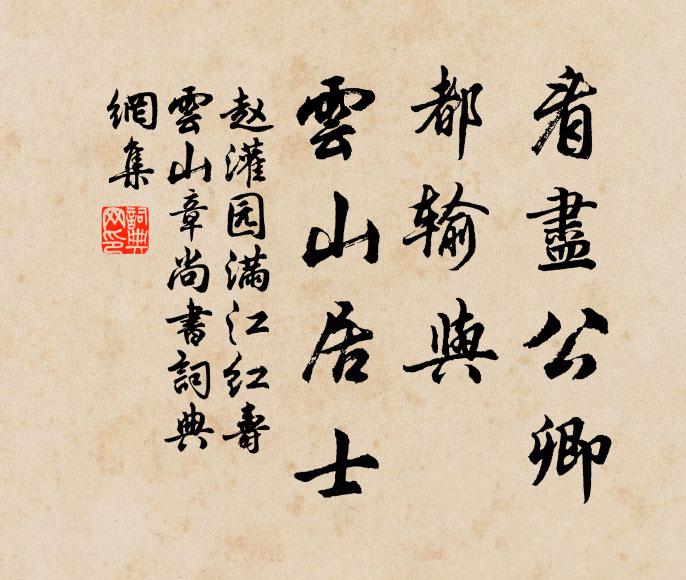 看盡公卿
都输與
雲山居士
赵灌园满江红壽
雲山章尚書詞典
網集
詞典网印